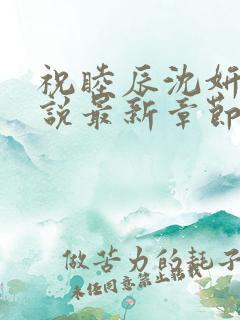 祝睦辰沈妍
说最新章节
做苦力的耗子
未经同意禁止转载